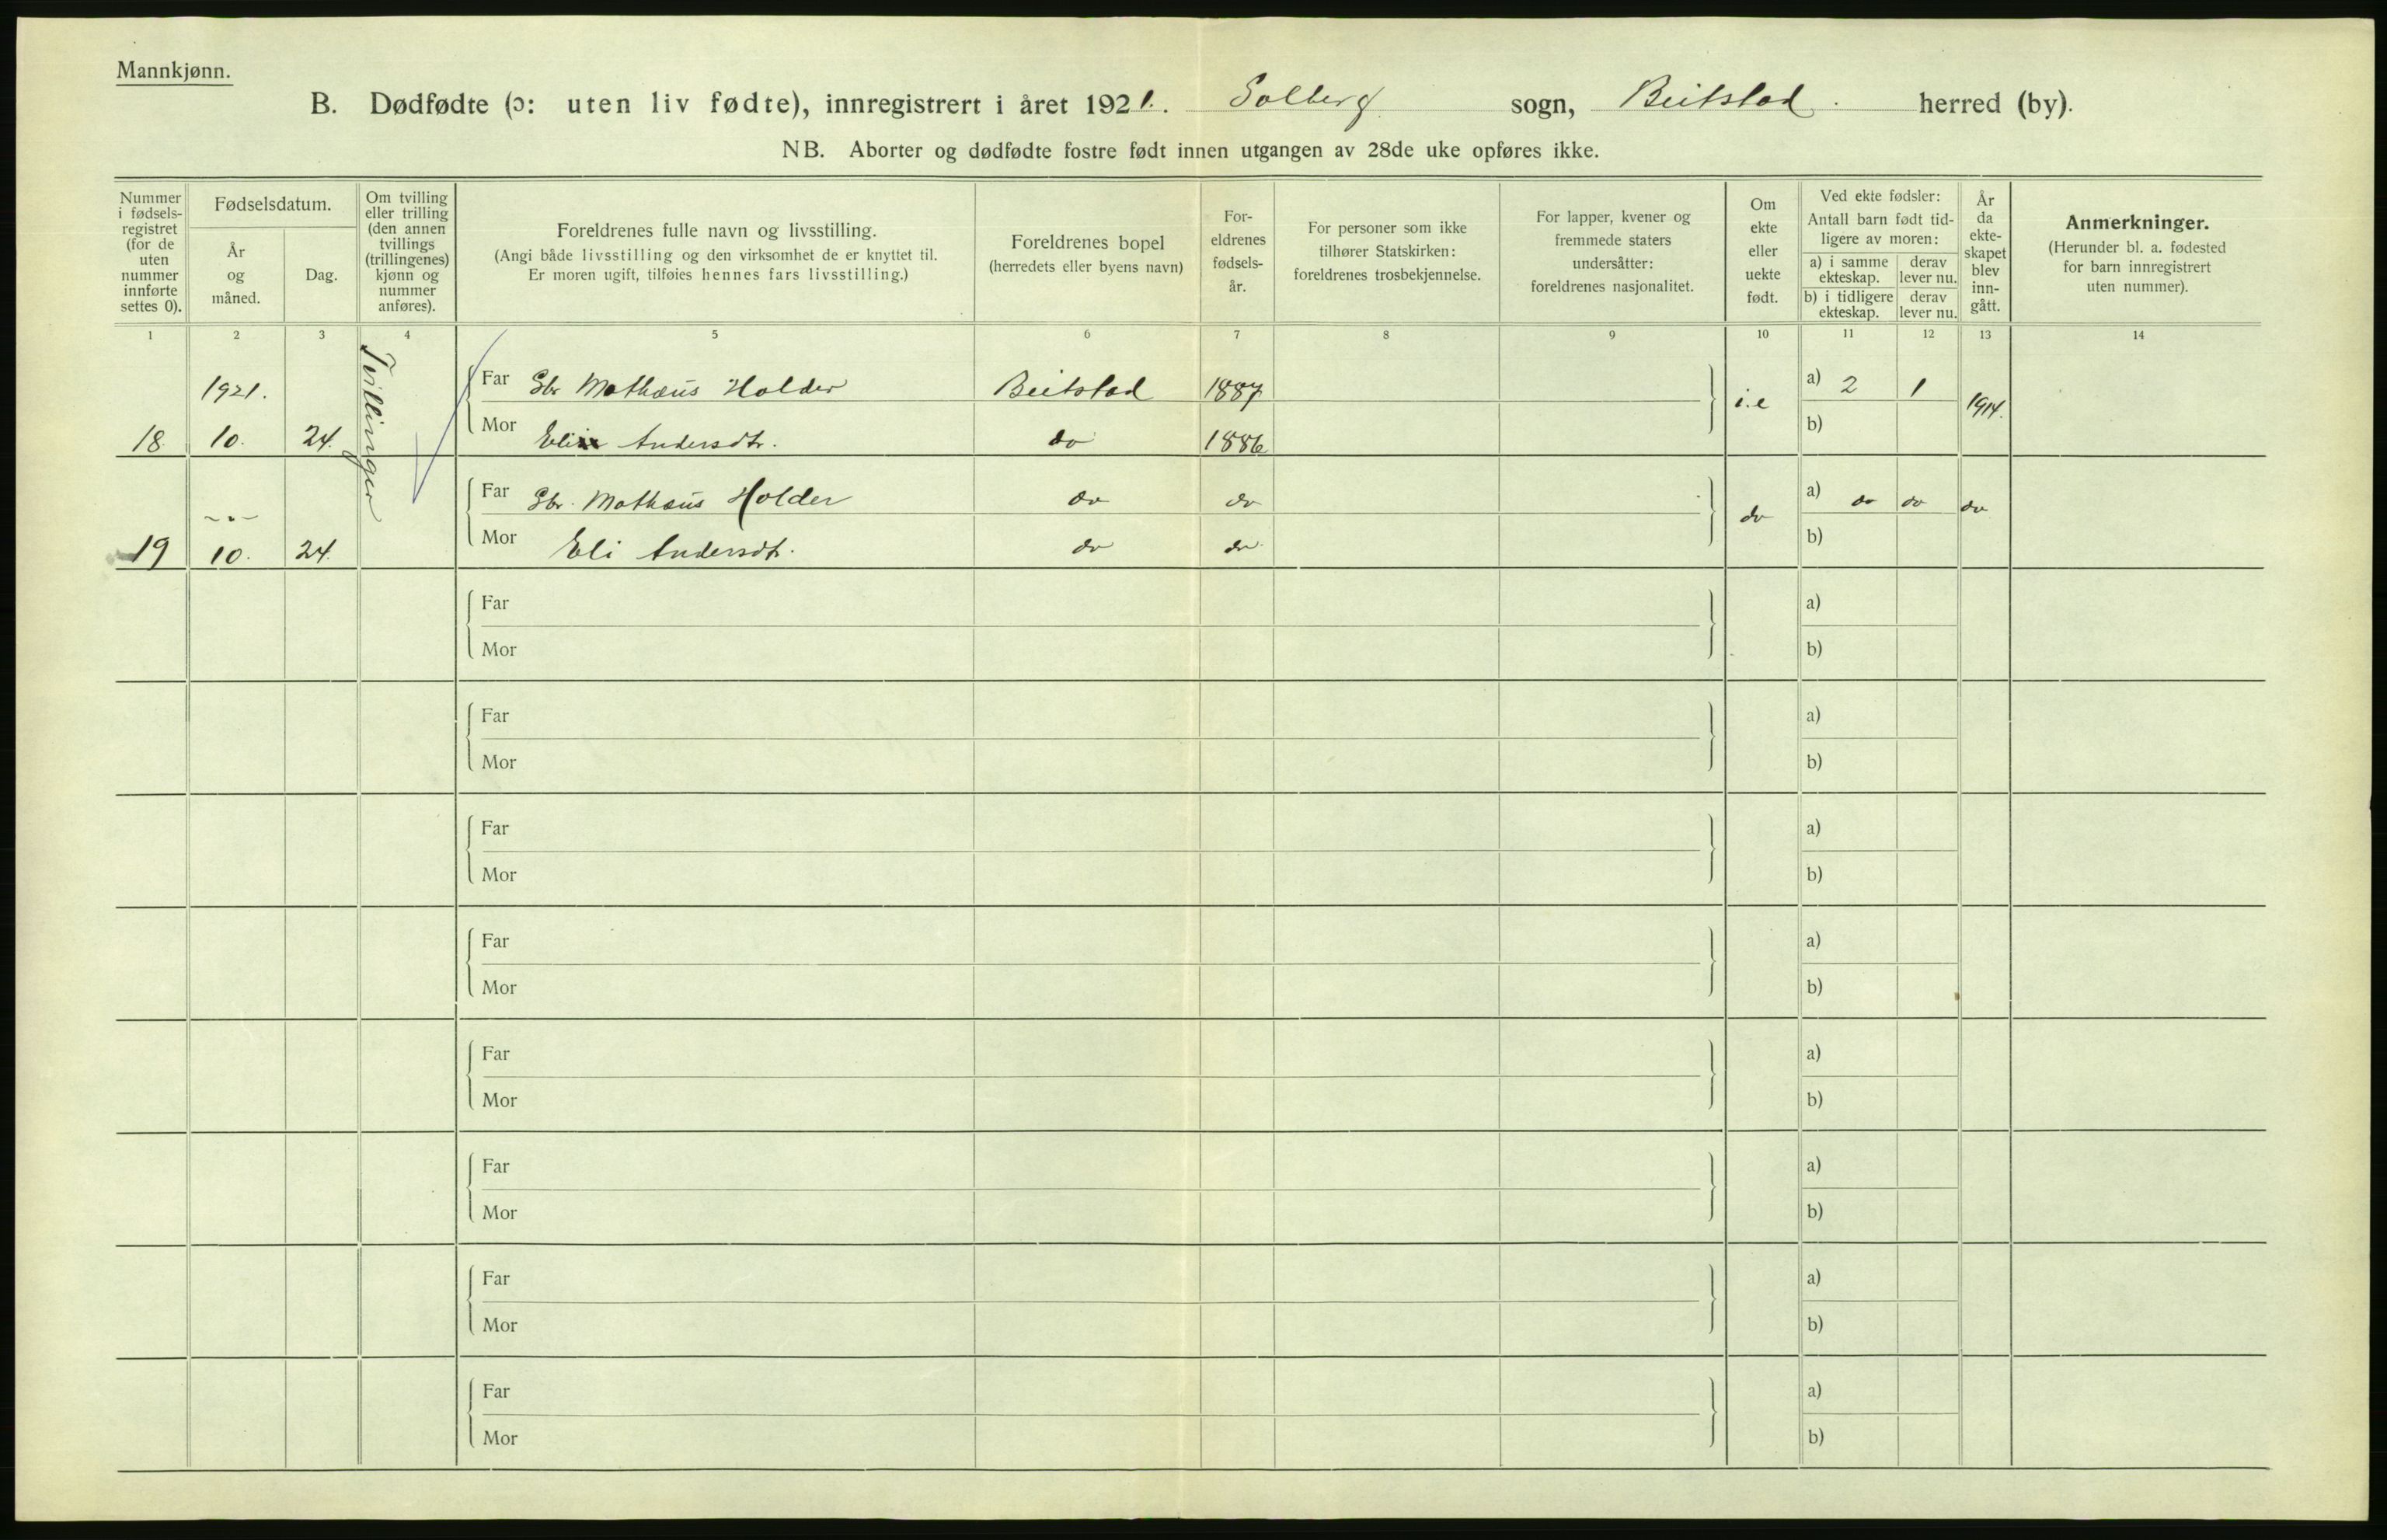 Mannkjønn.
B. Dødfødte (ɔ: uten liv fødte), innregistrert i året 1921. Solberg sogn, Beitstad. herred (by).
NB. Aborter og dødfødte fostre født innen utgangen av 28de uke opføres ikke.
Nummer i fødsels-registret (for de uten nummer innførte settes 0).
Fødselsdatum.
År og måned.
Dag.
Om tvilling eller trilling (den annen tvillings (trillingenes) kjønn og nummer anføres).
Foreldrenes fulle navn og livsstilling.
(Angi både livsstilling og den virksomhet de er knyttet til.
Er moren ugift, tilføies hennes fars livsstilling.)
Foreldrenes bopel
(herredets eller byens navn)
For-eldrenes fødsels-år.
For personer som ikke tilhører Statskirken: foreldrenes trosbekjennelse.
For lapper, kvener og fremmede staters undersåtter: foreldrenes nasjonalitet.
Om ekte eller uekte født.
Ved ekte fødsler:
Antall barn født tid-ligere av moren:
a) i samme ekteskap.
derav lever nu.
b) i tidligere ekteskap.
derav lever nu.
År da ekte-skapet blev inn-gått.
Anmerkninger.
(Herunder bl. a. fødested for barn innregistrert uten nummer).
1 2 3 4 5 6 7 8 9 10 11 12 13 14
Tvillinger
1921. Far Gbr Mathæus Holder Beitstad 1887 i.e a) 2 1 1914.
18. 10. 24. Mor Eli Andersdtr. do 1886 b)
-"- Far Gbr. Mathæus Holder do do do a) do do do
19 10. 24. Mor Eli Andersdtr. do do b)
Far a)
Mor b)
Far a)
Mor b)
Far a)
Mor b)
Far a)
Mor b)
Far a)
Mor b)
Far a)
Mor b)
Far a)
Mor b)
Far a)
Mor b)